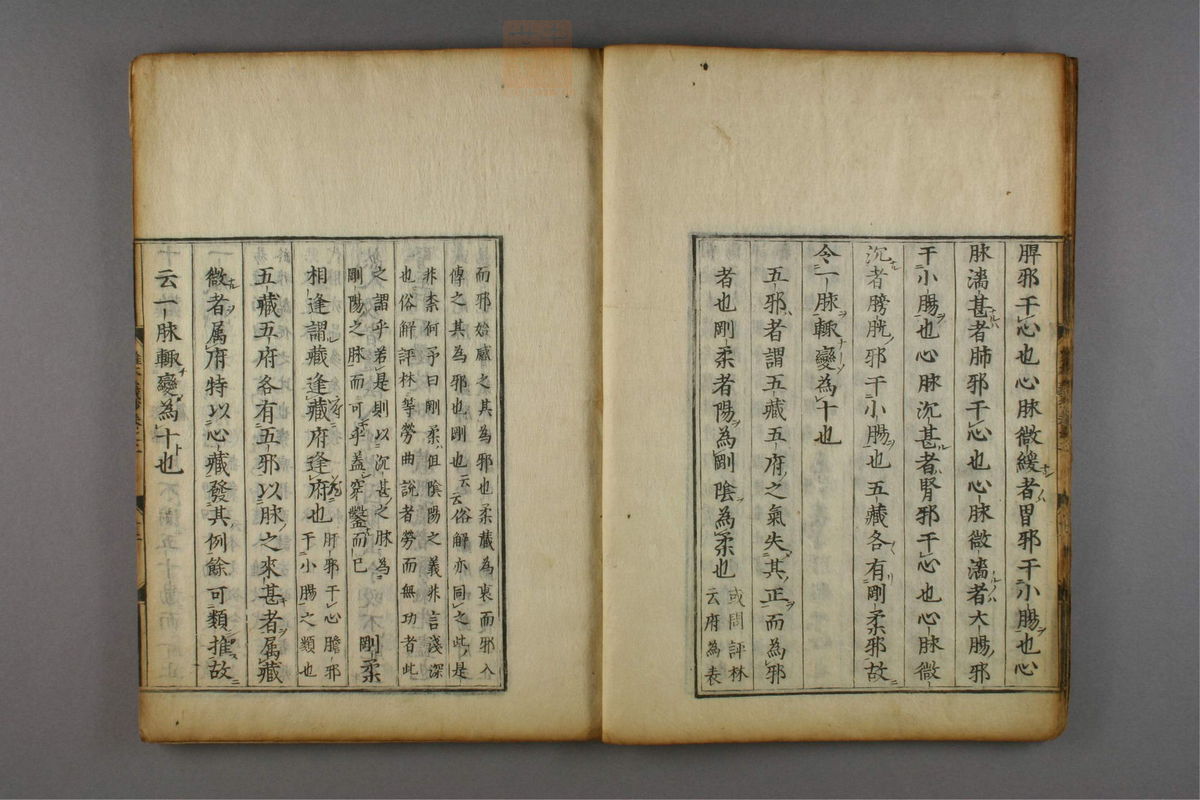 脾邪干心也心脉微緩者胃邪干小腸也心
脉濇甚者肺邪干心也心脉微濇者大腸邪
干小腸也心脉沉甚者腎邪干心也心脉微
沉者膀胱邪干小腸也五藏各有剛柔邪故
令一脉輙變為十也
五邪者謂五藏五府之氣失其正而為邪
者也剛柔者陽為剛陰為柔也
或問評林
云府為表
而邪始感之其為邪也柔藏為裏而邪入
傳之其為邪也剛也云云俗解亦同之此是
非柰何予曰剛柔但陰陽之義非言淺深
也俗解評林等勞曲說者勞而無功者此
之謂乎若是則以沉甚之脉為
剛陽之脉而可乎蓋穿鑿而已
剛柔
相逢謂藏逢藏府逢府也
肝邪干心膽邪
干小腸之類也
五藏五府各有五邪以脉之來甚者属藏
微者属府特以心藏發其例餘可類推故
云一脉輙變為十也